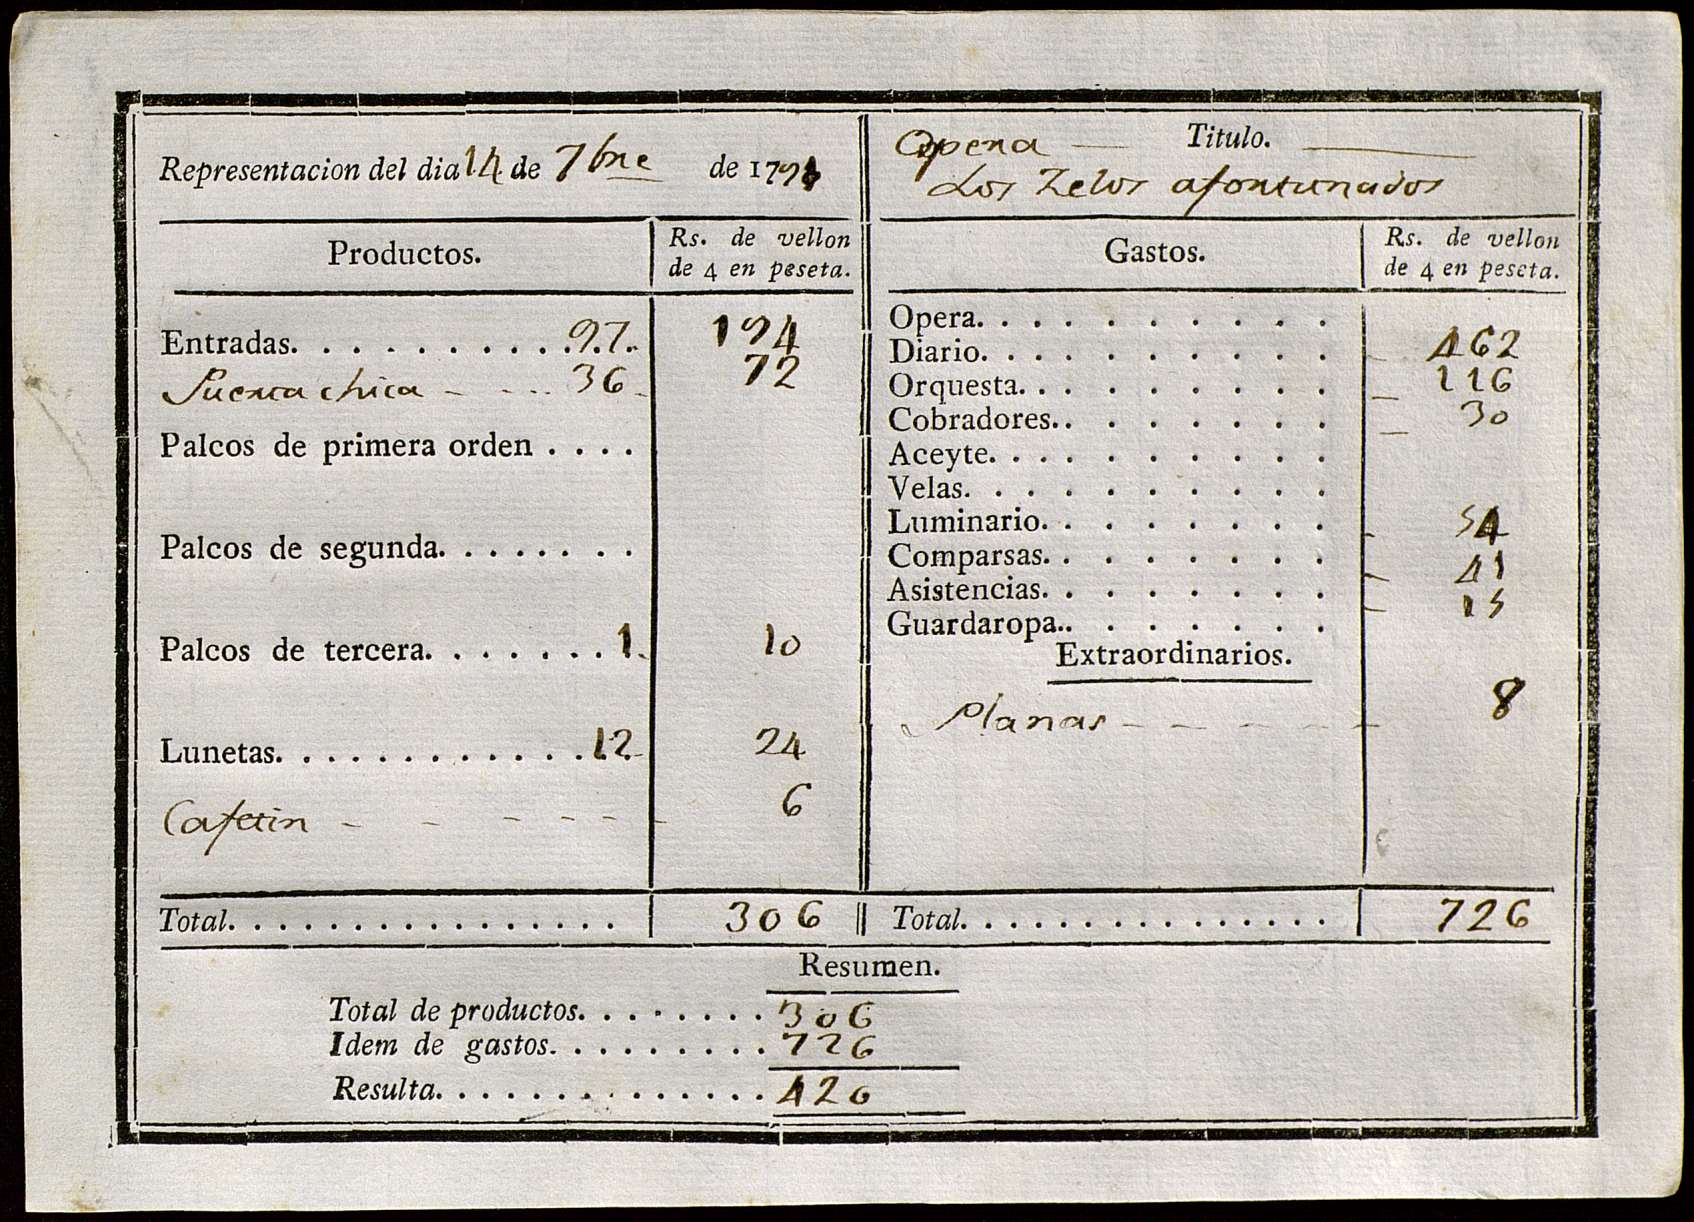 Representacion del dia 14 de 7bre de 179
Opera Titulo.
Los Zelos afortunados
Productos. Rs. de vellon
de 4 en peseta.
Entradas. 97. 194
Puerta chica 36 72
Palcos de primera orden
Palcos de segunda.
Palcos de tercera. 1 10
Lunetas. 12 24
Cafetin 6
Total. 306
Gastos. Rs. de vellon
de 4 en peseta.
Opera.
Diario. 462
Orquesta. 116
Cobradores. 30
Aceyte.
Velas.
Luminario. 54
Comparsas. 41
Asistencias. 15
Guardaropa.
Extraordinarios.
Planas 8
Total. 726
Resumen.
Total de productos. 306
Idem de gastos. 726
Resulta. 420